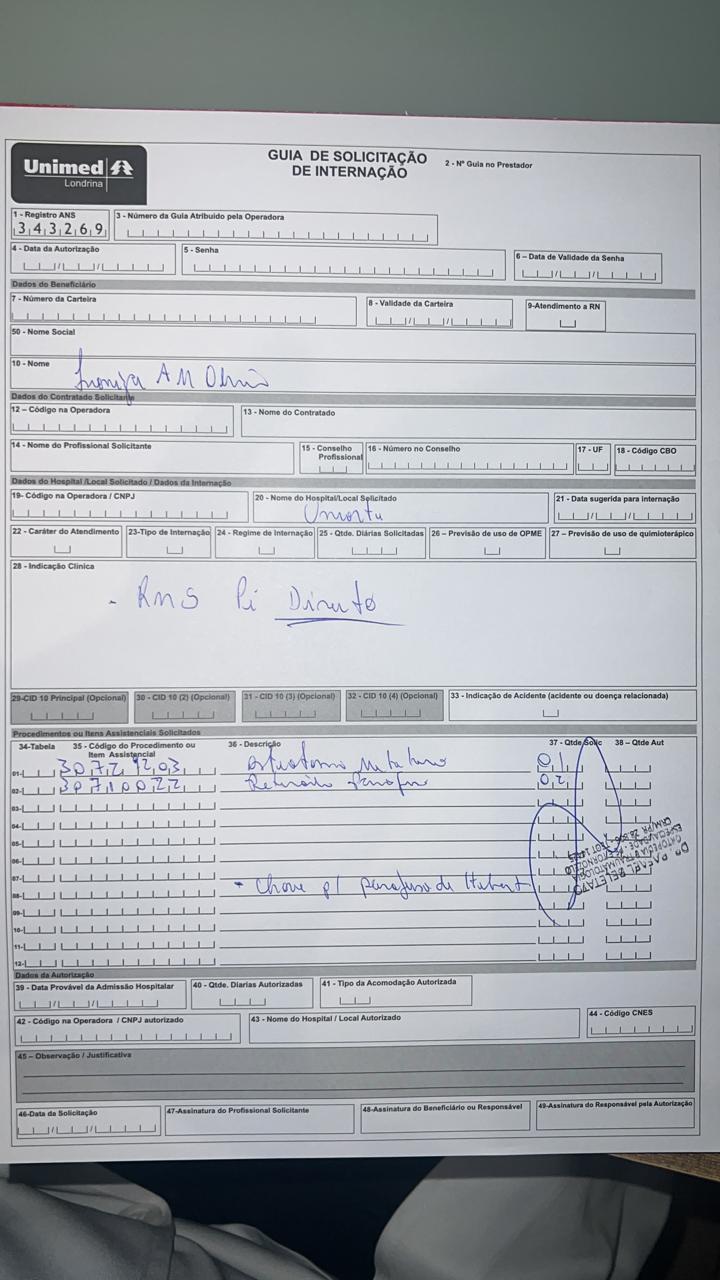 Unimed
Londrina
GUIA DE SOLICITAÇÃO
DE INTERNAÇÃO
2 - Nº Guia no Prestador
1 - Registro ANS
3 4 3 2 6 9
3 - Número da Guia Atribuido pela Operadora
4 - Data da Autorização
5 - Senha
6 – Data de Validade da Senha
Dados do Beneficiário
7 - Número da Carteira
8 - Validade da Carteira
9-Atendimento a RN
50 - Nome Social
10 - Nome
A M
Dados do Contratado Solicitante
12 – Código na Operadora
13 - Nome do Contratado
14 - Nome do Profissional Solicitante
15 - Conselho Profissional
16 - Número no Conselho
17 - UF
18 - Código CBO
Dados do Hospital /Local Solicitado / Dados da Internação
19- Código na Operadora / CNPJ
20 - Nome do Hospital/Local Solicitado
21 - Data sugerida para internação
22 – Caráter do Atendimento
23-Tipo de Internação
24 - Regime de Internação
25 - Qtde. Diárias Solicitadas
26 – Previsão de uso de OPME
27 – Previsão de uso de quimioterápico
28 - Indicação Clinica
- RMS
29-CID 10 Principal (Opcional)
30 - CID 10 (2) (Opcional)
31 - CID 10 (3) (Opcional)
32 - CID 10 (4) (Opcional)
33 - Indicação de Acidente (acidente ou doença relacionada)
Procedimentos ou Itens Assistenciais Solicitados
34-Tabela
35 - Código do Procedimento ou Item Assistencial
36 - Descrição
37 - Qtde Solic
38 – Qtde Aut
01-
0 1
02- 3 0 7 1 0 0 2 2
0 2
03-
04-
05-
06-
07-
08-
• Chave p/ parafuso de
09-
10-
11-
12-
ORTOPEDIA E TRAUMATOLOGIA
Dados da Autorização
39 - Data Provável da Admissão Hospitalar
40 - Qtde. Diarias Autorizadas
41 - Tipo da Acomodação Autorizada
42 - Código na Operadora / CNPJ autorizado
43 - Nome do Hospital / Local Autorizado
44 - Código CNES
45 – Observação / Justificativa
46-Data da Solicitação
47-Assinatura do Profissional Solicitante
48-Assinatura do Beneficiário ou Responsável
49-Assinatura do Responsável pela Autorização